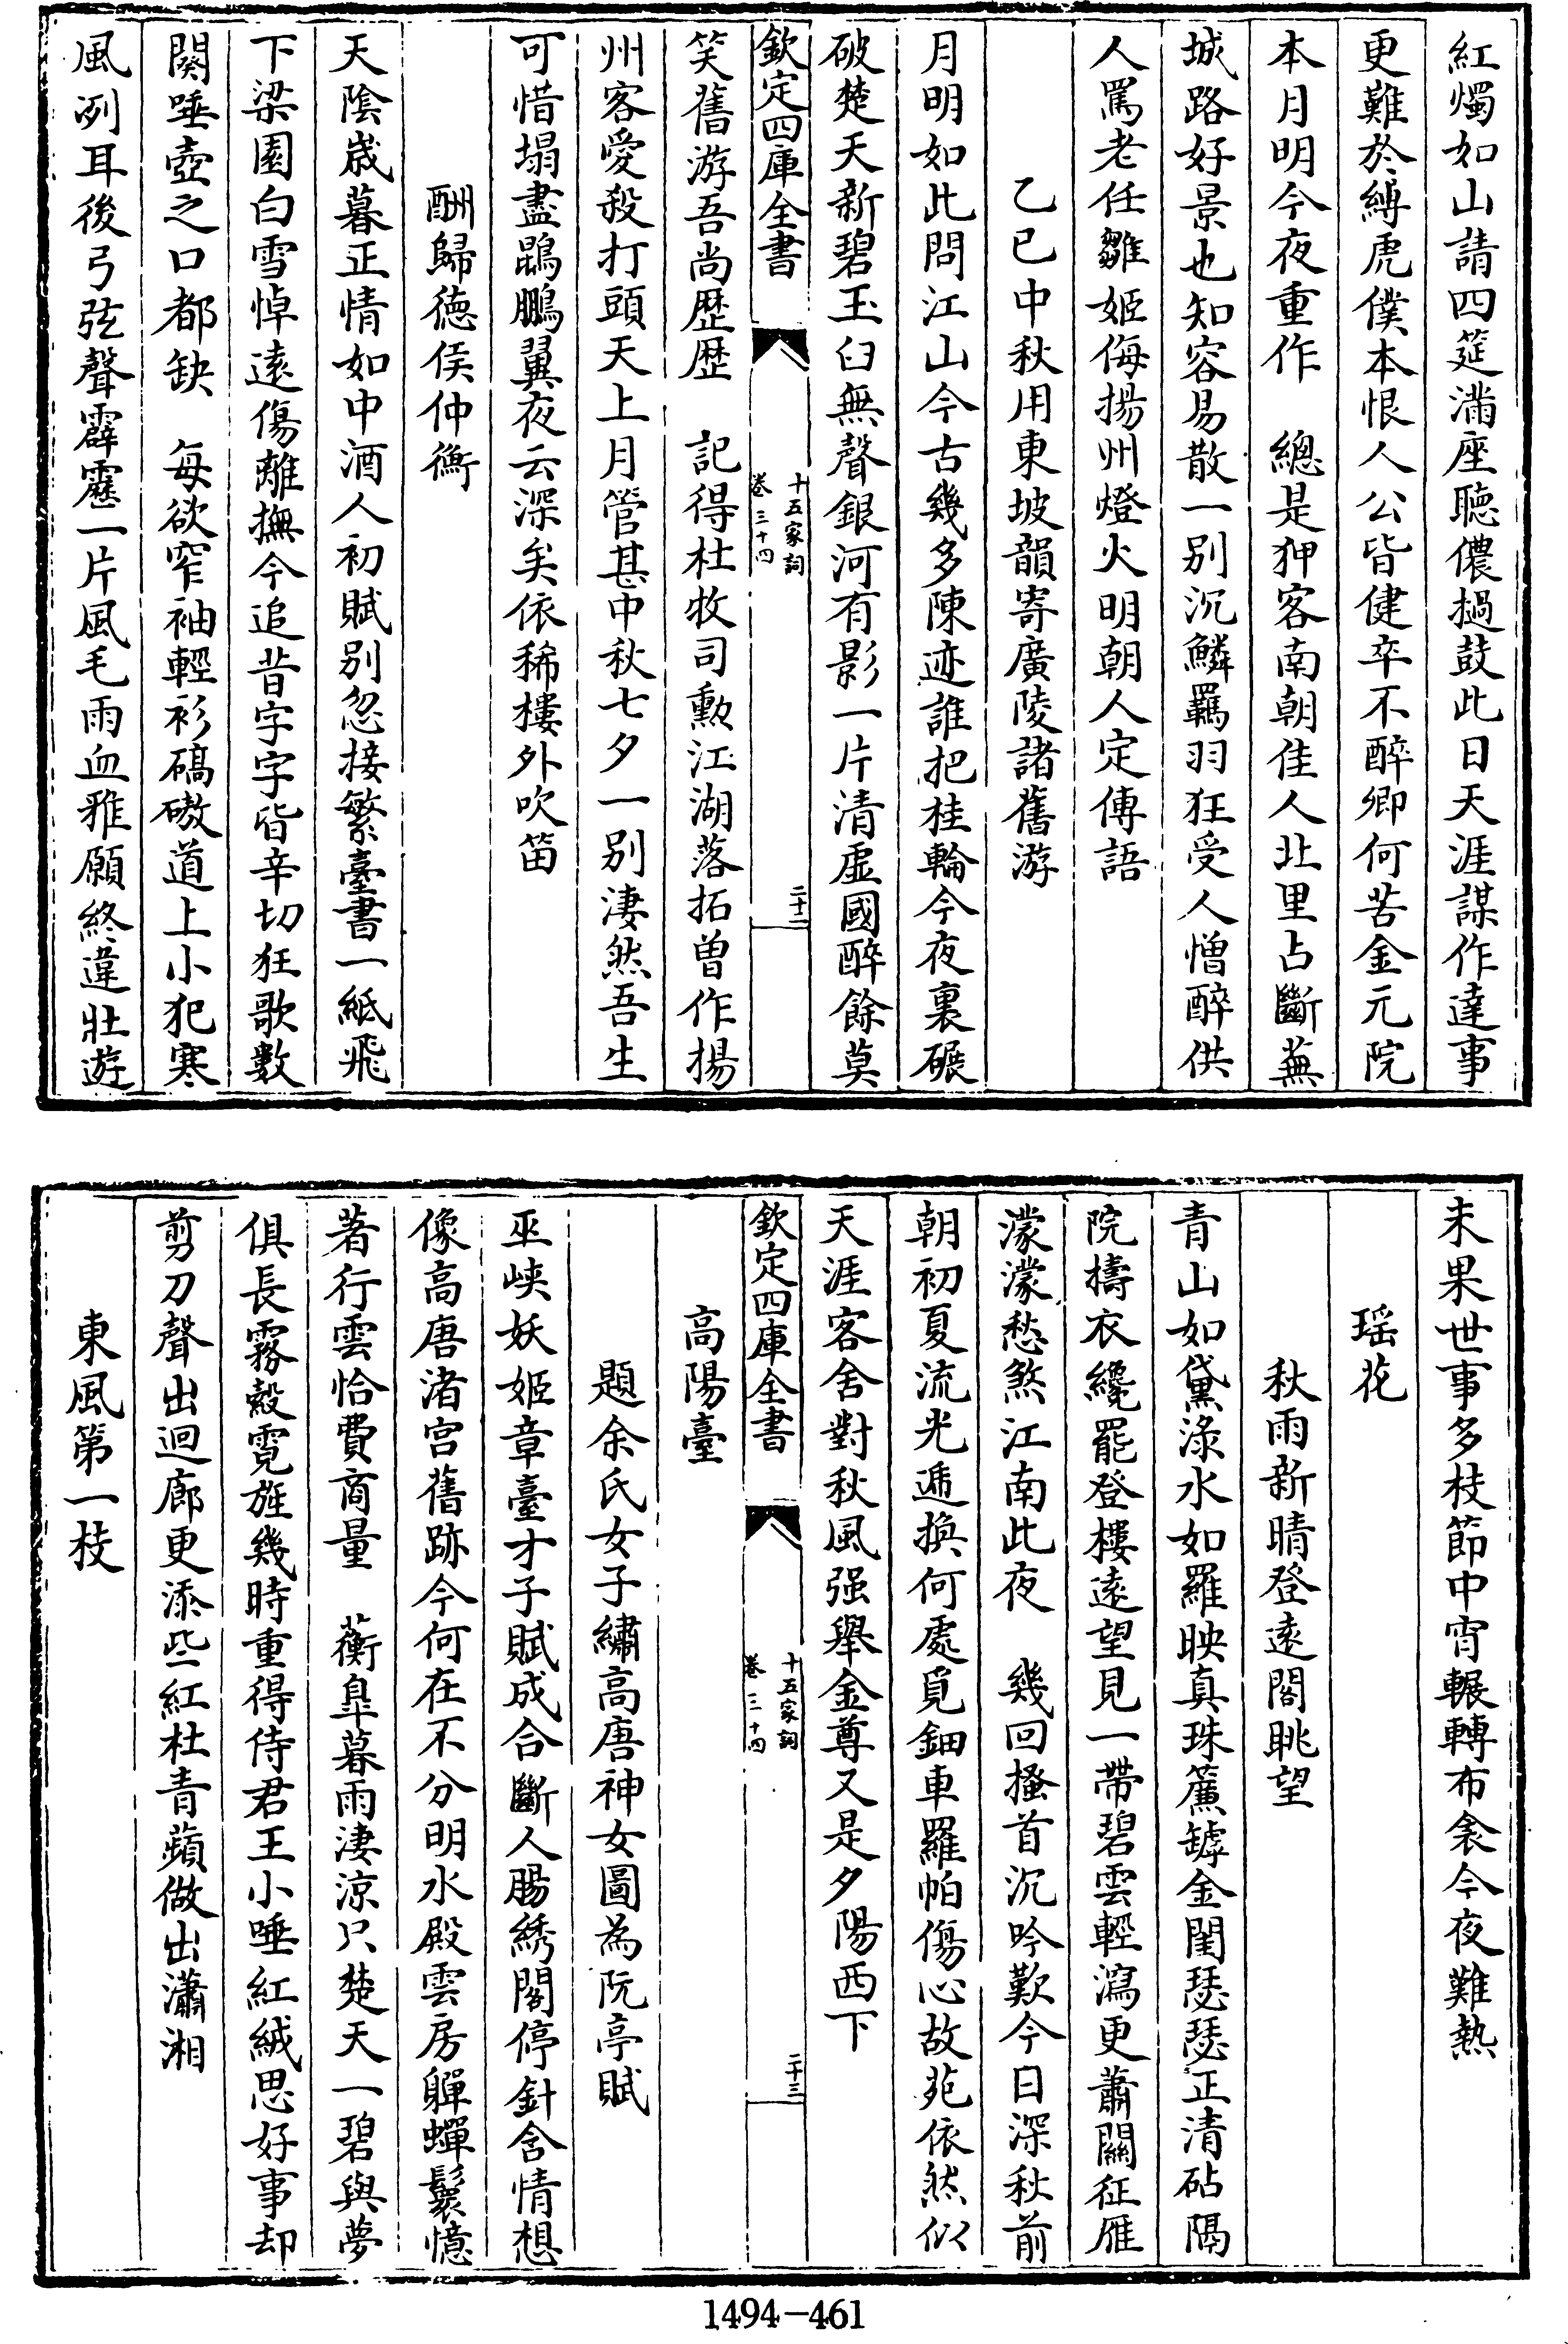 紅燭如山請四筵滿座聽儂撾鼓此日天涯謀作達事
更難於縛虎僕本恨人公皆健卒不醉卿何苦金元院
本月明今夜重作　總是狎客南朝佳人北里占斷蕪
城路好景也知容易散一别沉鱗羈羽狂受人憎醉供
人罵老任雛姬侮揚州燈火明朝人定傳語
乙巳中秋用東坡韻寄廣陵諸舊游
月明如此問江山今古幾多陳迹誰把桂輪今夜裏碾
破楚天新碧玉臼無聲銀河有影一片清虛國醉餘莫
欽定四庫全書
十五家詞
卷三十四
二十二
笑舊游吾尚歷歷　記得杜牧司勲江湖落拓曾作揚
州客愛殺打頭天上月管甚中秋七夕一别淒然吾生
可惜塌盡鵾鵬翼夜云深矣依稀樓外吹笛
酬歸徳侯仲衡
天隂歲暮正情如中酒人初賦别忽接繁臺書一紙飛
下梁園白雪悼遠傷離撫今追昔字字皆辛切狂歌數
闋唾壺之口都缺　每欲窄袖輕衫碻磝道上小犯寒
風冽耳後弓弦聲霹靂一片風毛雨血雅願終違壯遊
未果世事多枝節中宵輾轉布衾今夜難熱
瑶花
秋雨新晴登遠閣眺望
青山如黛淥水如羅映真珠簾罅金閨瑟瑟正清砧隔
院擣衣纔罷登樓遠望見一帶碧雲輕瀉更蕭關征雁
濛濛愁煞江南此夜　幾回搔首沉吟歎今日深秋前
朝初夏流光遞換何處覓鈿車羅帕傷心故苑依然似
天涯客舍對秋風强舉金尊又是夕陽西下
欽定四庫全書
十五家詞
卷三十四
二十三
高陽臺
題余氏女子繡高唐神女圖為阮亭賦
巫峽妖姬章臺才子賦成合斷人腸綉閣停針含情想
像高唐渚宫舊跡今何在不分明水殿雲房嚲蟬鬟憶
著行雲恰費商量　蘅臯暮雨淒涼只楚天一碧與夢
俱長霧縠霓旌幾時重得侍君王小唾紅絨思好事却
剪刀聲出迴廊更添些紅杜青蘋做出瀟湘
東風第一枝
1494-461